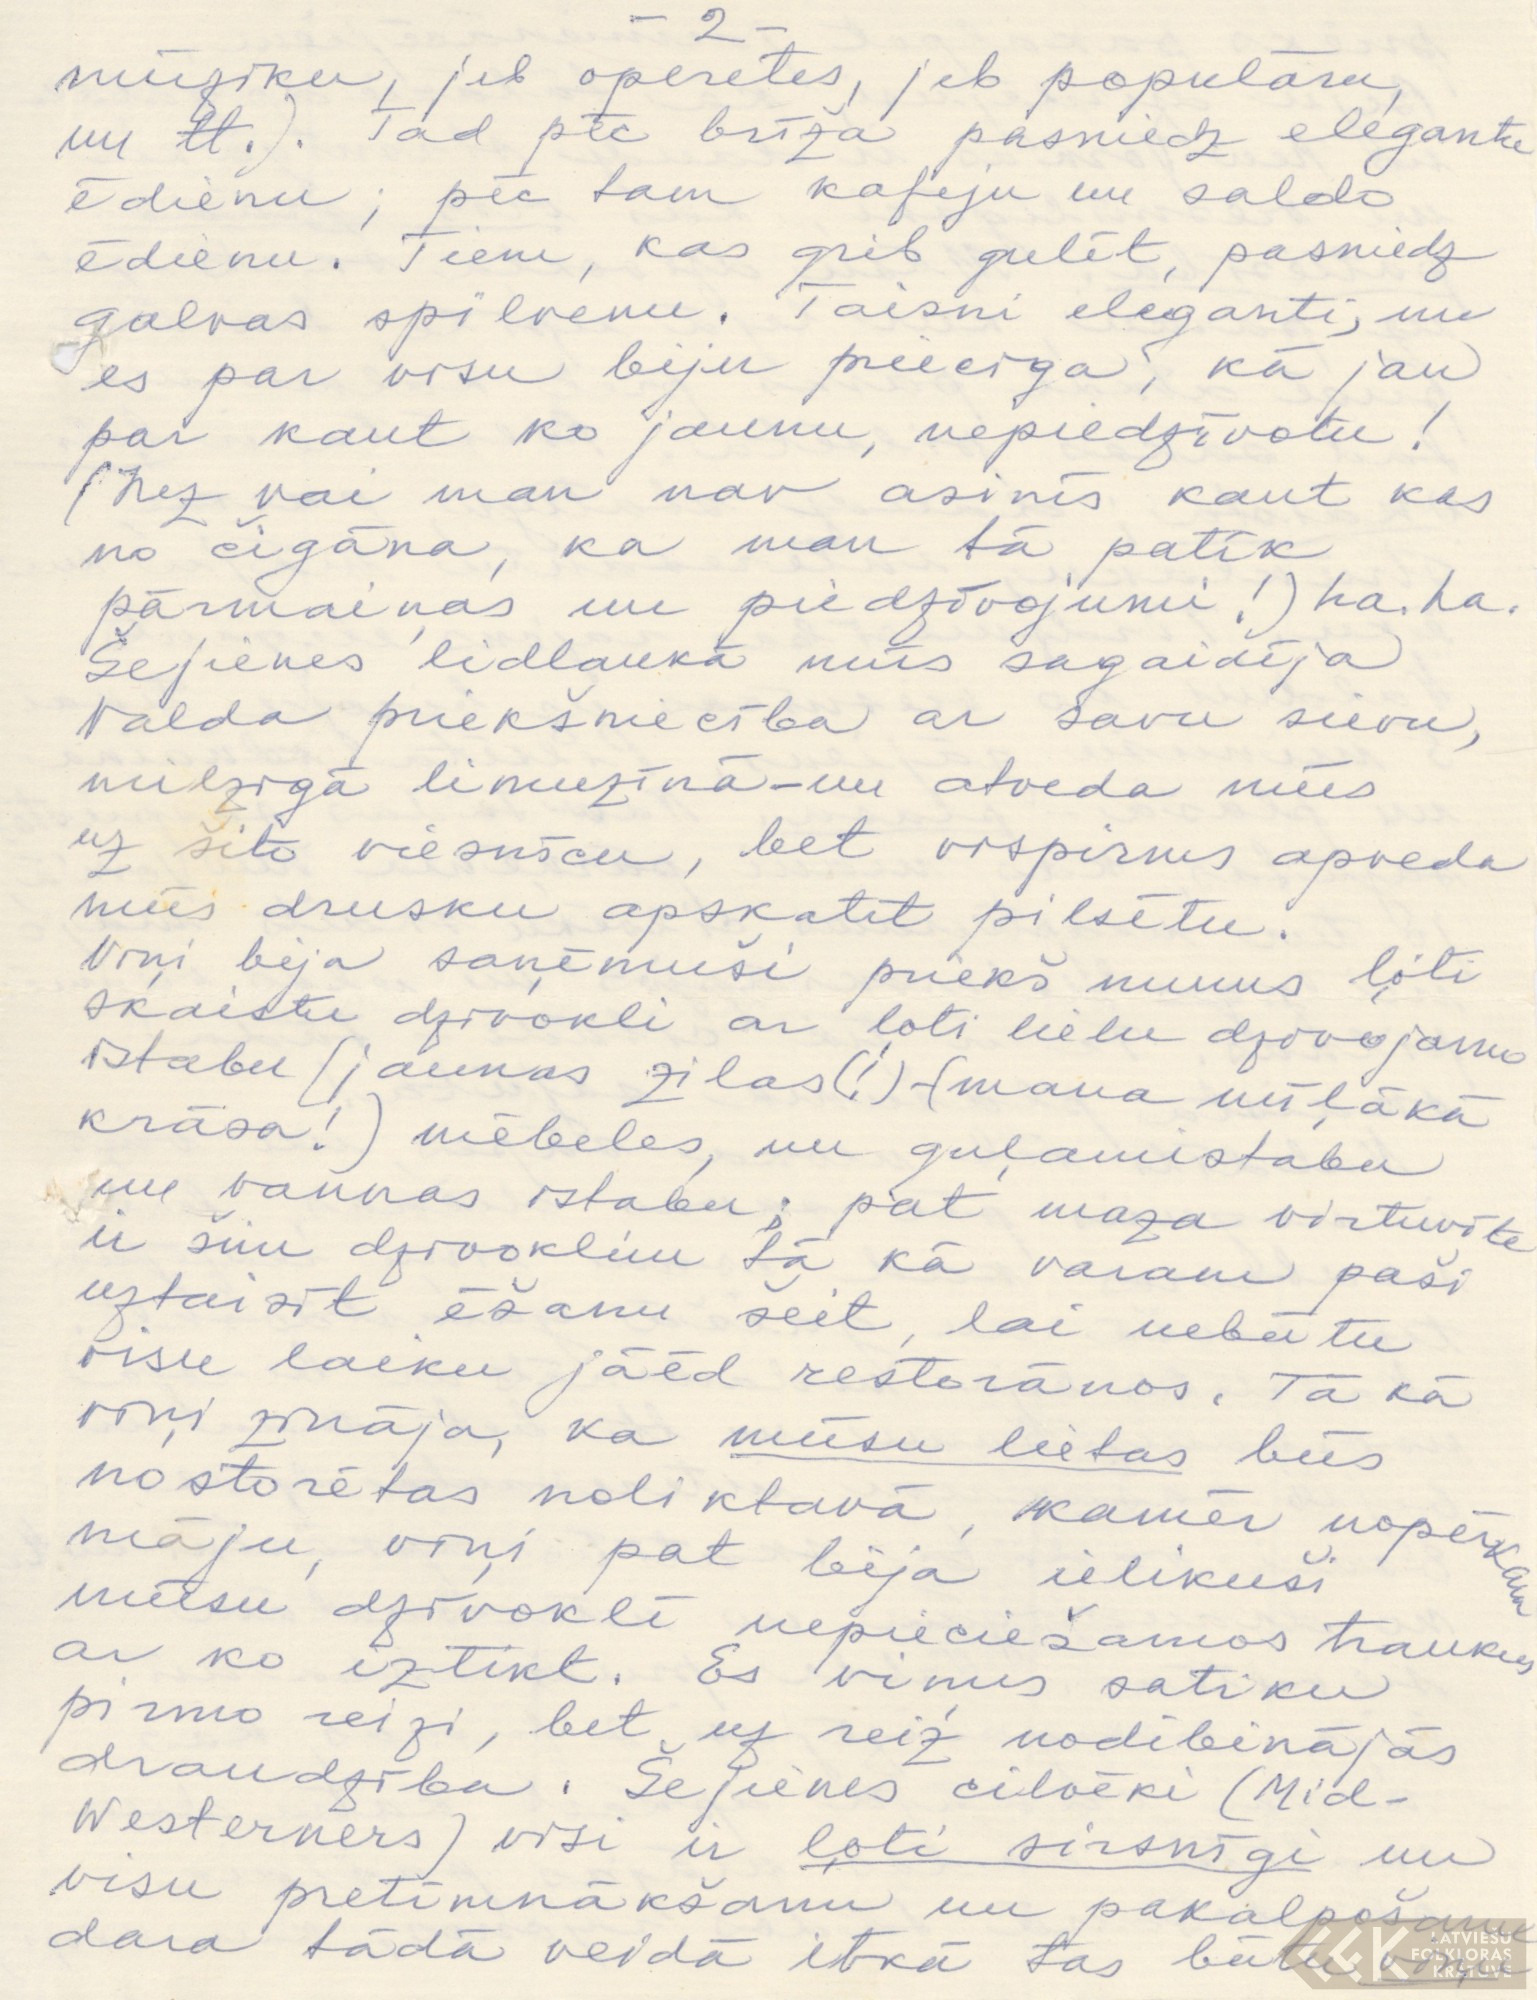 - 2 -
mūziku, jeb operetes, jeb populāru,
un tt.). Tad pēc brīža pasniedz elegantu
ēdienu; pēc tam kafeju un saldo
ēdienu. Tiem, kas grib gulēt, pasniedz
galvas spilvenu. Taisni eleganti, un
es par visu biju priecīga, kā jau
par kaut ko jaunu, nepiedzīvotu!
(Nez vai man nav asinīs kaut kas
no čigāna, ka man tā patīk
pārmaiņas un piedzīvojumi!) ha. ha.
Šejienes lidlaukā mūs sagaidīja
Valda priekšniecība ar savu sievu,
milzīgā limuzīnā - un atveda mūs
uz šito viesnīcu, bet vispirms apveda
mūs drusku apskatīt pilsētu.
Viņi bija saņēmuši priekš mums ļoti
skaistu dzīvokli ar ļoti lielu dzīvojamo
istabu (jaunas zilas(!) - (mana mīļākā
krāsa!) mēbeles, un guļamistabu
un vannas istabu; pat maza virtuvīte
ir šim dzīvoklim tā kā varam paši
uztaisīt ēšanu šeit, lai nebūtu
visu laiku jāēd restorānos. Tā kā
viņi zināja, ka mūsu lietas būs
nostorētas noliktavā, kamēr nopērkam
māju, viņi pat bija ielikuši
mūsu dzīvoklī nepieciešamos traukus
ar ko iztikt. Es viņus satiku
pirmo reizi, bet uz reiz nodibinājās
draudzība. Šejienes cilvēki (Mid-
Westerners) visi ir ļoti sirsnīgi un
visu pretimnākšanu un pakalpošanu
dara tādā veidā itkā tas būtu viņu
LATVIEŠU
FOLKLORAS
KRĀTUVE